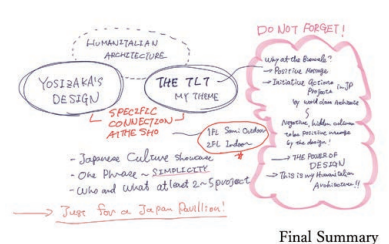 HUMANITALIAN
ARCHITECTURE
YOSIZAKA'S
DESIGN
THE TLT
MY THEME
SPECIFIC
CONNECTION
AT THE SHO
1FL Semi Outdoor
2FL Indoor
- Japanese Culture Showcase
- One Phrase ~ SIMPLICITY
- Who and What at least 2~5 project
→ Just for a Japan Pavillion!
DO NOT FORGET!
Why at the Biennale?
→ Positive Message
→ Initiative Actions in JP
Projects
by world class Architects
Negative, hidden culture
to be positive message
by the design!
→ THE POWER OF
DESIGN
→ This is my Humanitalian
Architecture!!
Final Summary